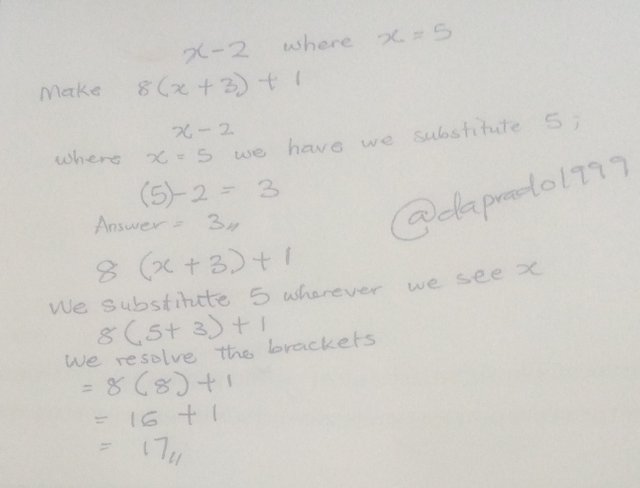 x-2 where x = 5
Make 8(x + 3) + 1
x - 2
where x = 5 we have we substitute 5;
(5)-2 = 3
Answer = 3,,
@daprado1999
8 (x + 3) + 1
We substitute 5 wherever we see x
8(5+ 3) + 1
We resolve the brackets
= 8 (8) + 1
= 16 + 1
= 17,,